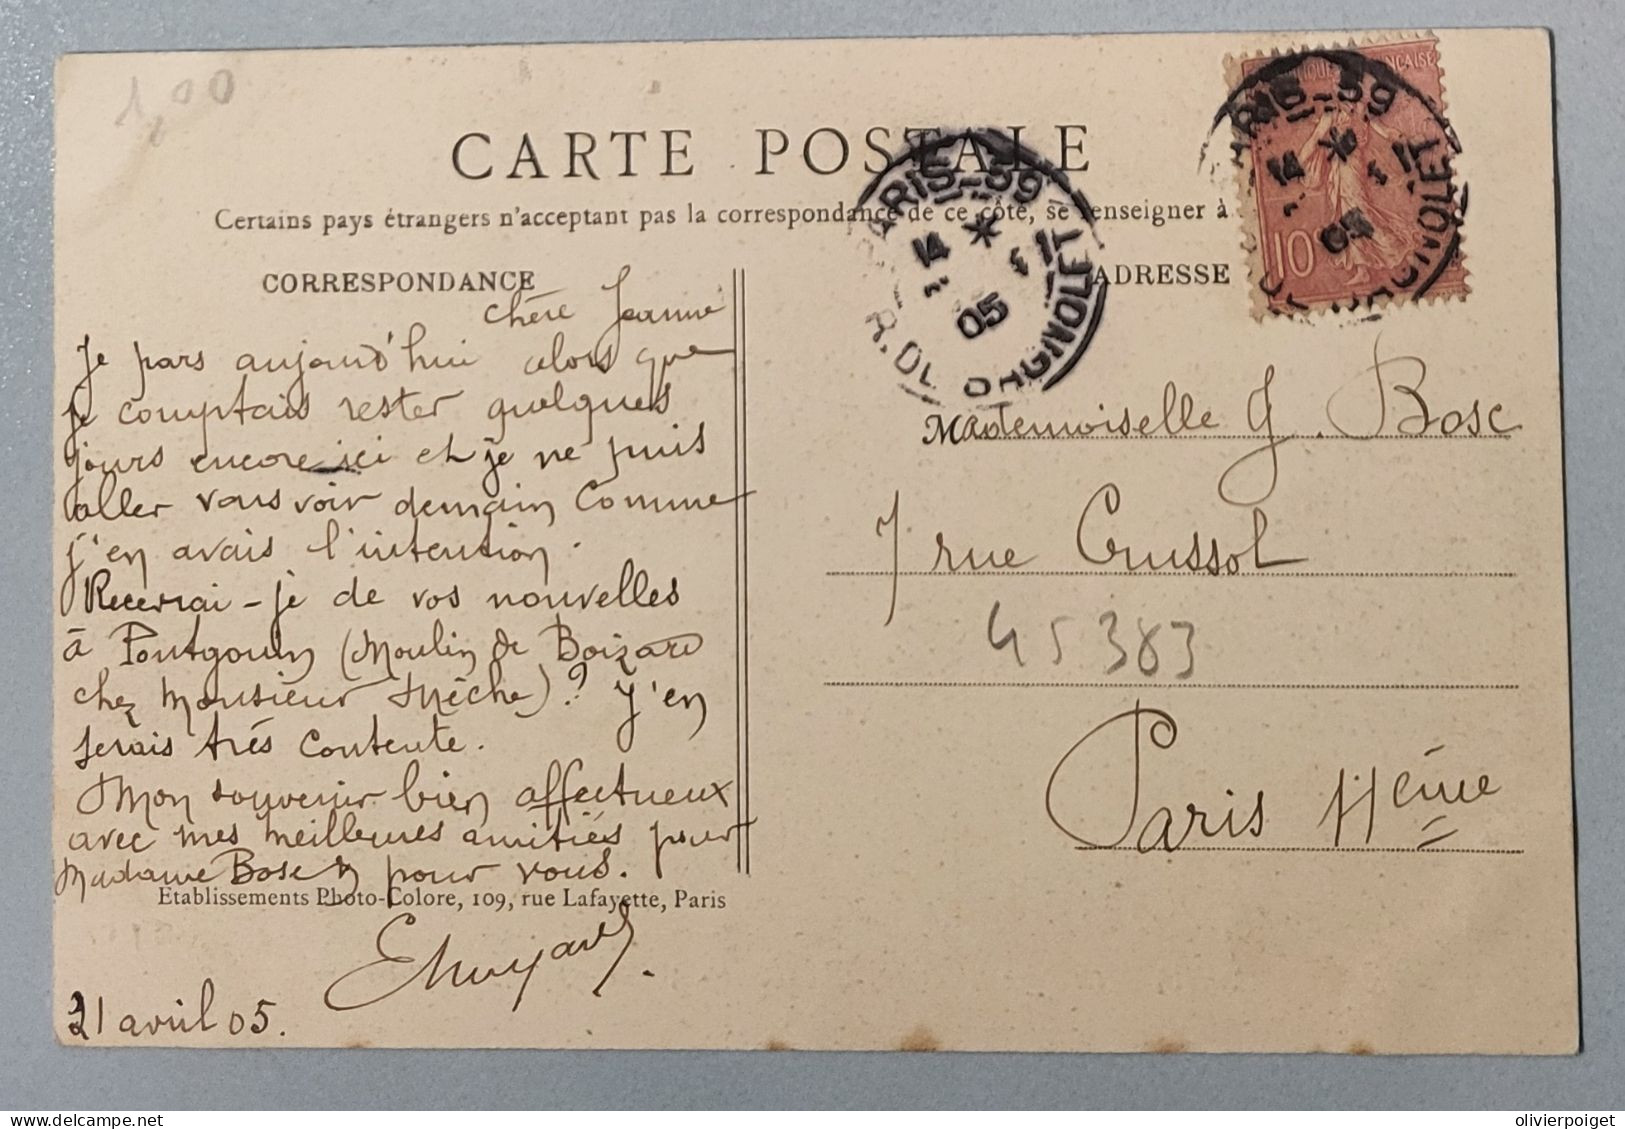 1,00
CARTE POSTALE
Certains pays étrangers n'acceptant pas la correspondance de ce côté, se renseigner à
CORRESPONDANCE
ADRESSE
10
PARIS-59
14
05
R. DU ORGNOLET
PARIS-59
14
05
chère Jeanne
Je pars aujourd'hui alors que
je comptais rester quelques
jours encore ici et je ne puis
aller vous voir demain comme
j'en avais l'intention.
Recevrai-je de vos nouvelles
à Pontgouin (Moulin de Boizard
chez Monsieur Mèche)? J'en
serais très contente.
Mon souvenir bien affectueux
avec mes meilleures amitiés pour
Madame Bosc & pour vous.
Etablissements Photo-Colore, 109, rue Lafayette, Paris
21 avril 05.
Mademoiselle J. Bosc
7 rue Crussol
45383
Paris 11ème
olivierpoiget